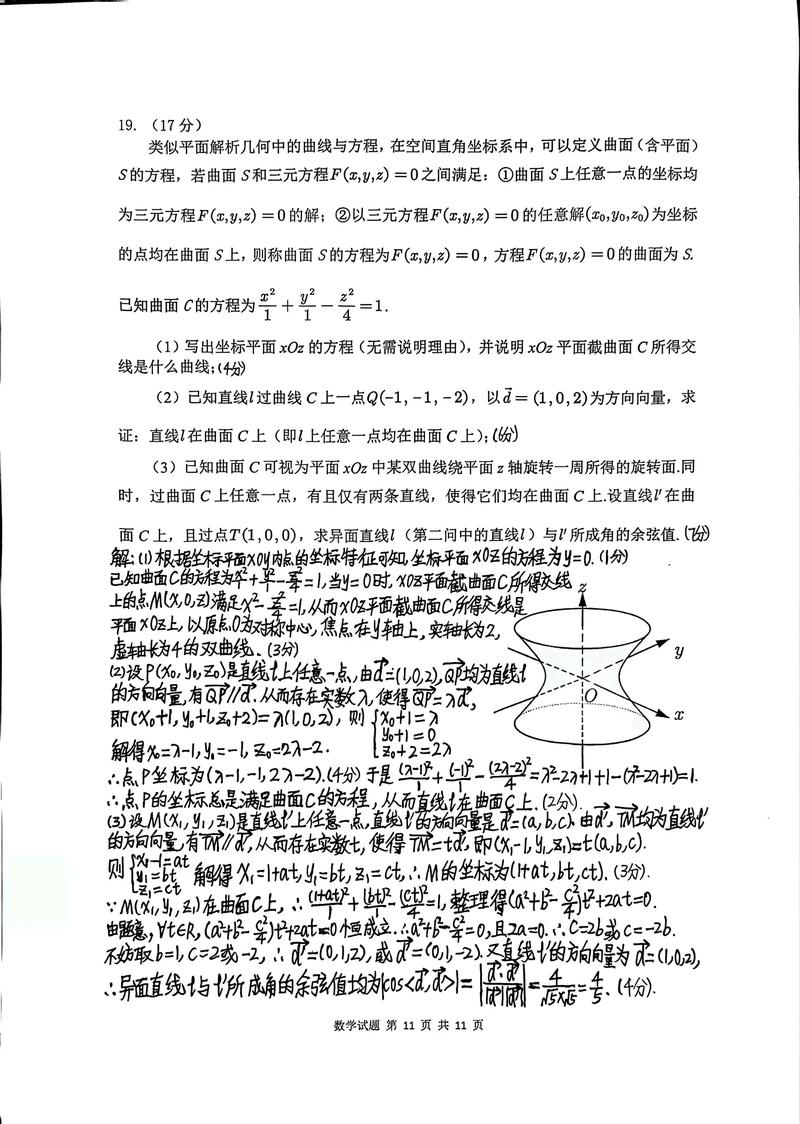 19. （17分）
类似平面解析几何中的曲线与方程，在空间直角坐标系中，可以定义曲面（含平面）
S的方程，若曲面 S和三元方程F(x,y,z)=0之间满足：①曲面 S上任意一点的坐标均
为三元方程F(x,y,z)=0的解；②以三元方程F(x,y,z)=0的任意解(x₀,y₀,z₀)为坐标
的点均在曲面 S上，则称曲面 S的方程为F(x,y,z)=0，方程F(x,y,z)=0的曲面为 S.
已知曲面 C的方程为 x²/1 + y²/1 - z²/4 = 1.
（1）写出坐标平面 xOz 的方程（无需说明理由），并说明 xOz 平面截曲面 C 所得交
线是什么曲线；(4分)
（2）已知直线l过曲线 C 上一点Q(-1，-1，-2)，以d⃗=(1,0,2)为方向向量，求
证：直线l在曲面 C上（即l上任意一点均在曲面 C上）；(6分)
（3）已知曲面 C可视为平面 xOz 中某双曲线绕平面 z 轴旋转一周所得的旋转面.同
时，过曲面 C 上任意一点，有且仅有两条直线，使得它们均在曲面 C 上.设直线l′在曲
面 C 上，且过点T(1,0,0)，求异面直线l（第二问中的直线l）与l′所成角的余弦值.(7分)
解:(1)根据坐标平面XOY内点的坐标特征可知,坐标平面XOZ的方程为y=0.(1分)
已知曲面C的方程为x²/1+y²/1-z²/4=1,当y=0时,XOZ平面截曲面C所得交线
上的点M(X,0,Z)满足x²-z²/4=1,从而XOZ平面截曲面C所得交线是
平面XOZ上,以原点O为对称中心,焦点在y轴上,实轴长为2,
虚轴长为4的双曲线.(3分)
(2)设P(x₀,y₀,z₀)是直线l上任意一点,由d⃗=(1,0,2),QP⃗均为直线l
的方向向量,有QP⃗//d⃗.从而存在实数λ,使得QP⃗=λd⃗,
即(x₀+1,y₀+1,z₀+2)=λ(1,0,2),则{x₀+1=λ
y₀+1=0
z₀+2=2λ
解得x₀=λ-1,y₀=-1,z₀=2λ-2.
∴点P坐标为(λ-1,-1,2λ-2).(4分)于是(λ-1)²/1+(-1)²/1-(2λ-2)²/4=λ²-2λ+1+1-(λ²-2λ+1)=1.
∴点P的坐标总是满足曲面C的方程,从而直线l在曲面C上.(2分)
(3)设M(x₁,y₁,z₁)是直线l′上任意一点,直线l′的方向向量是d′⃗=(a,b,c).由d′⃗,TM⃗均为直线l′
的方向向量,有TM⃗//d′⃗,从而存在实数t,使得TM⃗=td′⃗,即(x₁-1,y₁,z₁)=t(a,b,c).
则{x₁-1=at
y₁=bt
z₁=ct
解得x₁=1+at,y₁=bt,z₁=ct,∴M的坐标为(1+at,bt,ct).(3分)
∵M(x₁,y₁,z₁)在曲面C上,∴(1+at)²/1+(bt)²/1-(ct)²/4=1,整理得(a²+b²-c²/4)t²+2at=0.
由题意,∀t∈R,(a²+b²-c²/4)t²+2at=0恒成立.∴a²+b²-c²/4=0,且2a=0.∴c=2b或c=-2b.
不妨取b=1,c=2或-2,∴d′⃗=(0,1,2),或d′⃗=(0,1,-2).又直线l的方向向量为d⃗=(1,0,2),
∴异面直线l与l′所成角的余弦值均为|cos<d⃗,d′⃗>|=|d⃗·d′⃗/|d⃗||d′⃗||=4/√5×√5=4/5.(4分).
z
y
O
x
数学试题 第 11 页 共 11 页